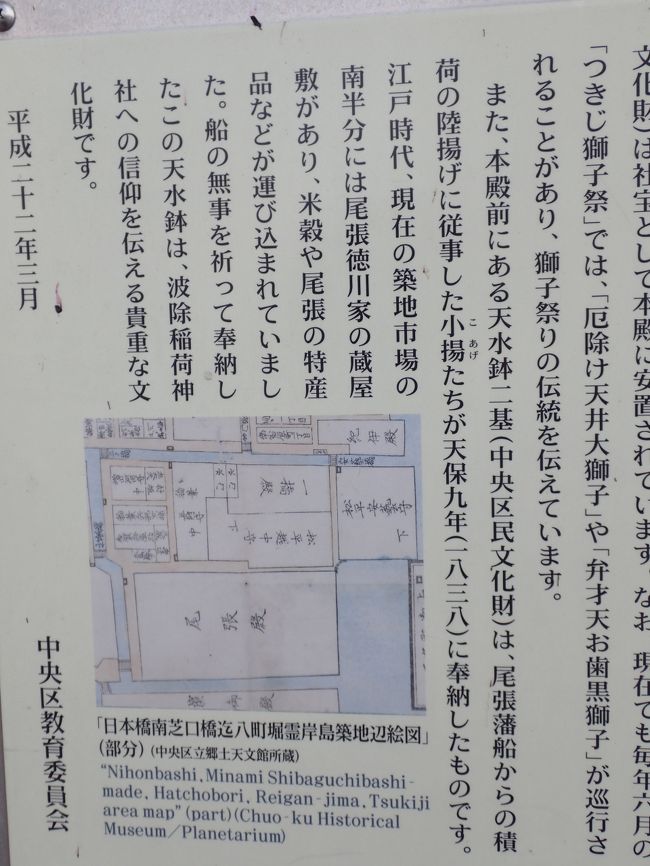 文化財)は社宝として本殿に安置されています。なお、現在でも毎年六月の
「つきじ獅子祭」では、「厄除け天井大獅子」や「弁才天お歯黒獅子」が巡行さ
れることがあり、獅子祭りの伝統を伝えています。
また、本殿前にある天水鉢二基(中央区民文化財)は、尾張藩船からの積
荷の陸揚げに従事した小揚たちが天保九年(一八三八)に奉納したものです。
こあげ
江戸時代、現在の築地市場の
南半分には尾張徳川家の蔵屋
敷があり、米穀や尾張の特産
品などが運び込まれていまし
た。船の無事を祈って奉納し
たこの天水鉢は、波除稲荷神
社への信仰を伝える貴重な文
化財です。
平成二十二年三月
中央区教育委員会
紀伊殿
一橋殿
松平安藝守
下
松平越中守
下
尾張殿
「日本橋南芝口橋迄八町堀霊岸島築地辺絵図」
(部分)(中央区立郷土天文館所蔵)
“Nihonbashi, Minami Shibaguchibashi-
made, Hatchobori, Reigan-jima, Tsukiji
area map” (part) (Chuo-ku Historical
Museum／Planetarium)